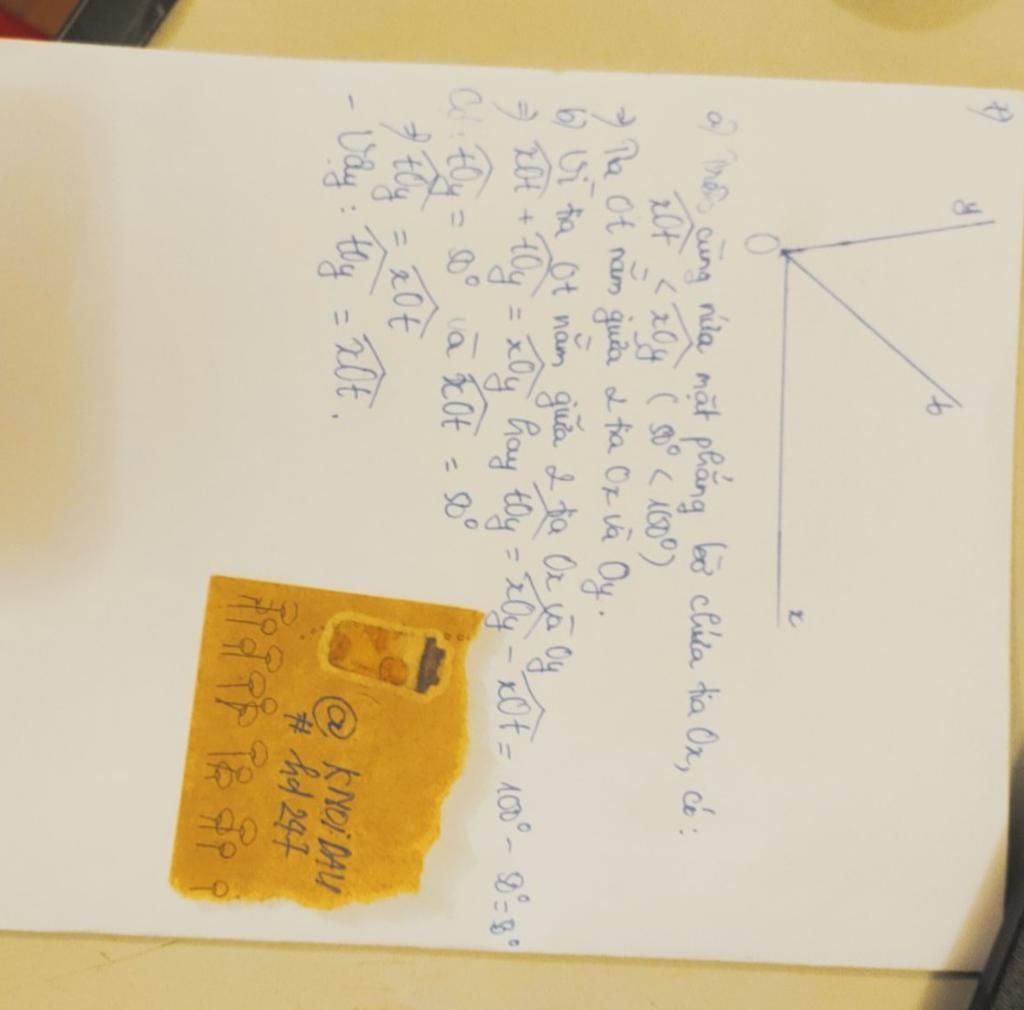 y
t
O
x
a) Trên cùng nửa mặt phẳng bờ chứa tia Ox, có:
xOt < xOy ( 50° < 100°)
⇒ Tia Ot nằm giữa 2 tia Ox và Oy.
b) Vì tia Ot nằm giữa 2 tia Ox và Oy
⇒ xOt + tOy = xOy hay tOy = xOy - xOt = 100° - 50° = 50°
Có: tOy = 50° và xOt = 50°
⇒ tOy = xOt
- Vậy: tOy = xOt.
@ KNOiDAU
# hd 247